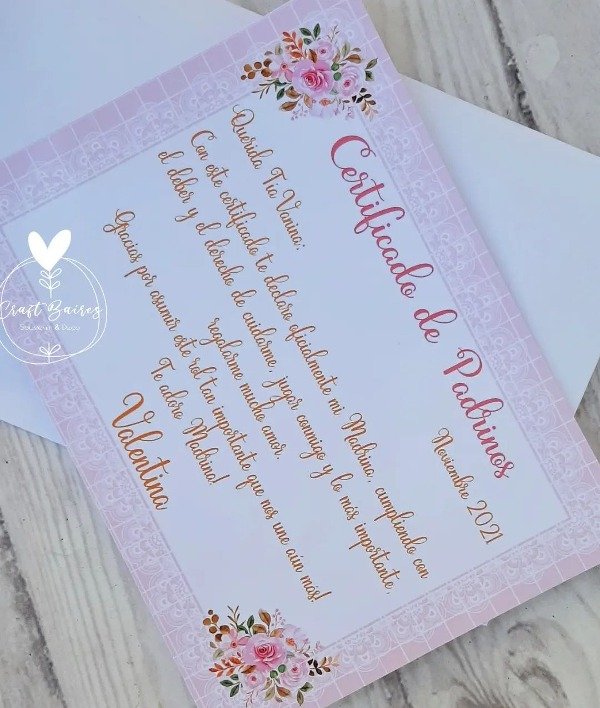 Certificado de Padrinos
Noviembre 2021
Querida Tía Vanina:
Con este certificado te declaro oficialmente mi Madrina, cumpliendo con
el deber y el derecho de cuidarme, jugar conmigo y lo más importante,
regalarme mucho amor.
Gracias por asumir este rol tan importante que nos une aún más!
Te adoro Madrina!
Valentina
Craft Baires
Souvenir & Deco